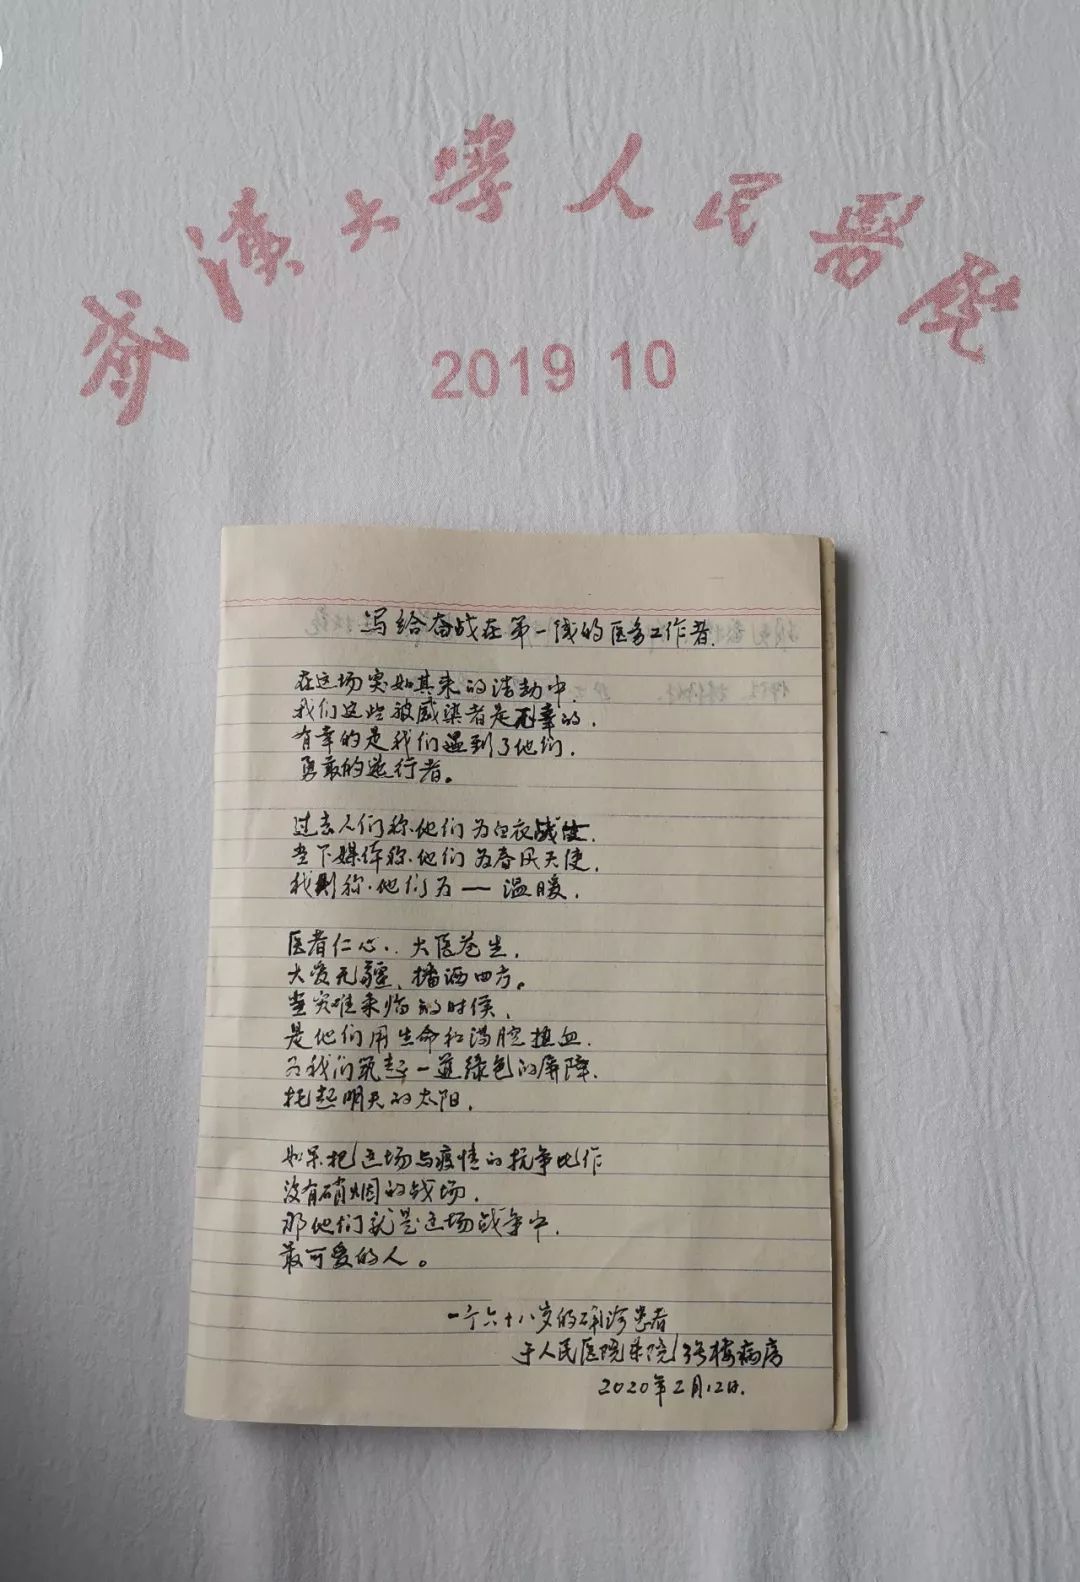 武漢大學人民醫院
2019 10
写给奋战在第一线的医务工作者.
在这场突如其来的浩劫中.
我们这些被感染者是不幸的.
有幸的是我们遇到了他们.
勇敢的逆行者。
过去人们称他们为白衣战士.
当下媒体称他们为春风天使.
我则称他们为——温暖.
医者仁心.大医苍生.
大爱无疆、播洒四方。
当灾难来临的时候.
是他们用生命和满腔热血.
为我们筑起一道绿色的屏障.
托起明天的太阳.
如果把这场与疫情的抗争比作
没有硝烟的战场.
那他们就是这场战争中.
最可爱的人。
一个六十八岁的确诊患者
于人民医院东院13号楼病房
2020年2月12日.